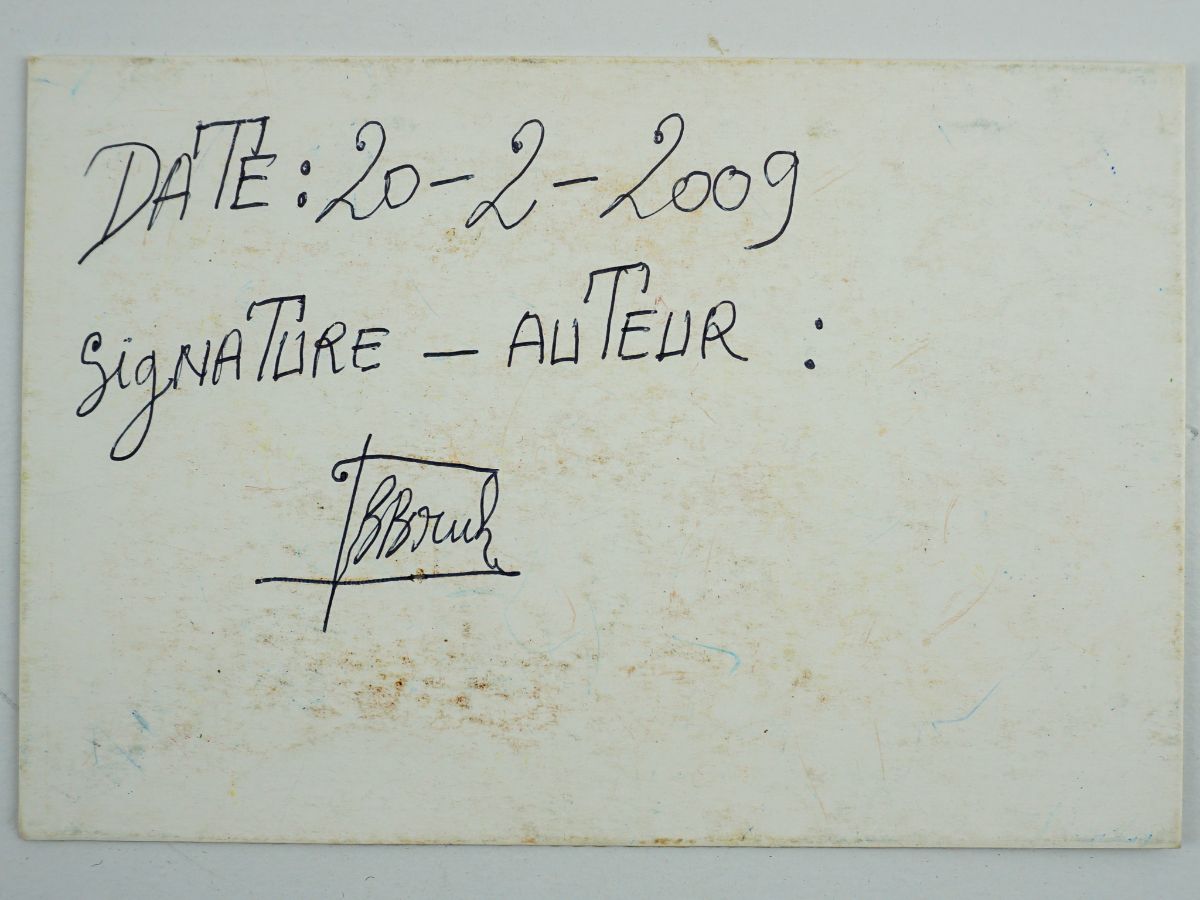 DATE : 20 - 2 - 2009
SIGNATURE - AUTEUR :